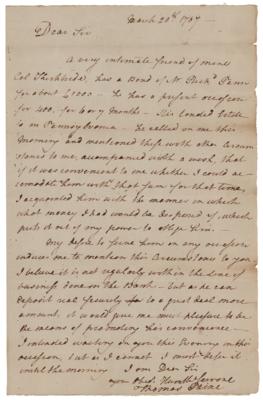 March 20th 1787
Dear Sir
A very intimate friend of mine
Col Kirkbride, has a Bond of Mr Rich.d Penn
for about £1000 — he has a present occasion
for 400, for 6 or 7 months — His landed Estate
is in Pennsylvania — he called on me this
Morning and mentioned these with other Circum
stances to me, accompanied with a wish, that
if it was convenient to me whether I could ac
comodate him with that Sum for that time,
I acquainted him with the manner in which
what money I had would be disposed of, which
puts it out of my power to oblige him.
My desire to serve him on any occasion
induce me to mention this Circumstance to you
I believe it is not regularly within the line of
business done on the Bank — but as he can
deposit real Security to a great deal more
amount, it would give me much pleasure to be
the means of promoting his convenience —
I intended waiting on you this Evening on this
occasion, but as I cannot I must defer it
until the morning I am Dear Sir
your Obed. Humble Servant
Thomas Paine